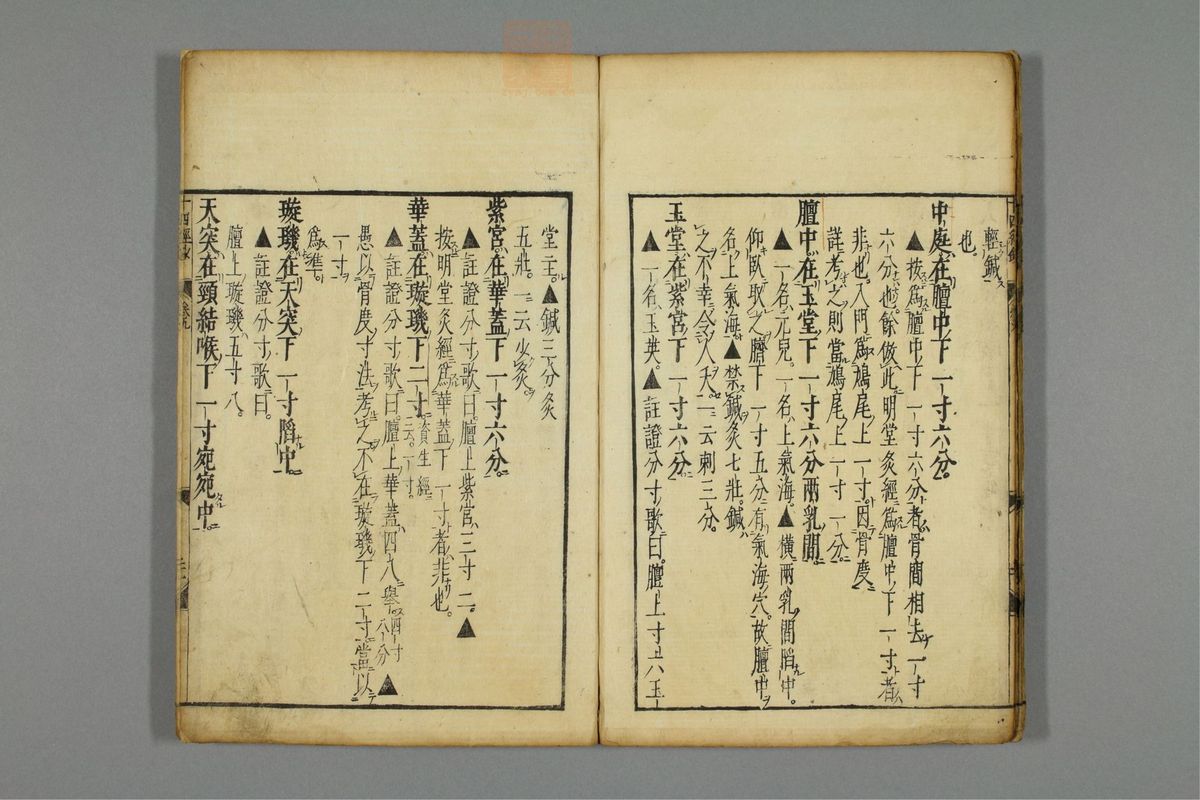 輕鍼
也。
中庭在膻中下一寸六分。
▲按爲膻中下一寸六分者骨間相去一寸
六分也餘倣此明堂灸經爲膻中下一寸者
非也入門爲鳩尾上一寸因骨度
詳考之則當鳩尾上一寸一分。
膻中在玉堂下一寸六分兩乳間。
▲一名元兒。一名上氣海。▲橫兩乳間陷中。
仰臥取之臍下一寸五分有氣海穴故膻中
名上氣海▲禁鍼灸七壯。鍼
之不幸令人夭。一云刺三分。
玉堂在紫宮下一寸六分
▲一名玉英。▲註證分寸歌曰。膻上寸六玉
堂主。▲鍼三分灸
五壯。一云少灸。
紫宮在華蓋下一寸六分。
▲註證分寸歌曰。膻上紫宮三寸二。▲
按明堂灸經爲華蓋下一寸者非也。
華蓋在璇璣下二寸。資生經
云。一寸。
▲註證分寸歌曰。膻上華蓋四八舉四寸
八分▲
愚以骨度寸法考之不在璇璣下二寸當以
一寸
爲準。
璇璣在天突下一寸陷中
▲註證分寸歌曰。
膻上璇璣五寸八。
天突在頸結喉下一寸宛宛中。
十四經